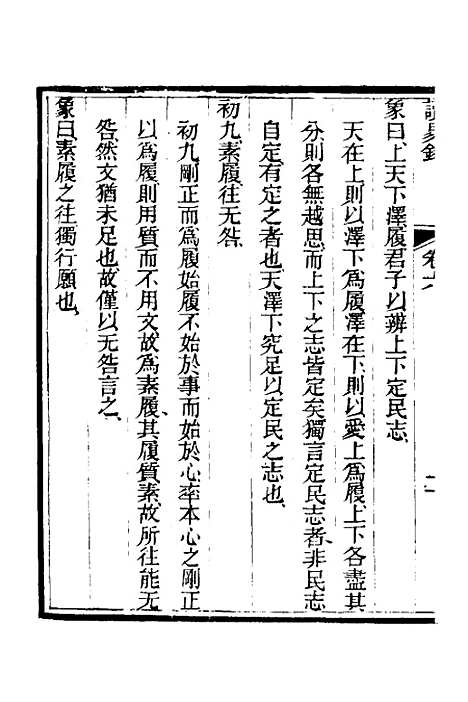 象曰上天下澤履君子以辨上下定民志
天在上則以澤下為履澤在下則以愛上為履上下各盡其
分則各無越思而上下之志皆定矣獨言定民志者非民志
自定有定之者也天澤下究足以定民之志也
初九素履往无咎
初九剛正而為履始履不始於事而始於心率本心之剛正
以為履則用質而不用文故為素履其履質素故所往能无
咎然文猶未足也故僅以无咎言之
象曰素履之往獨行願也